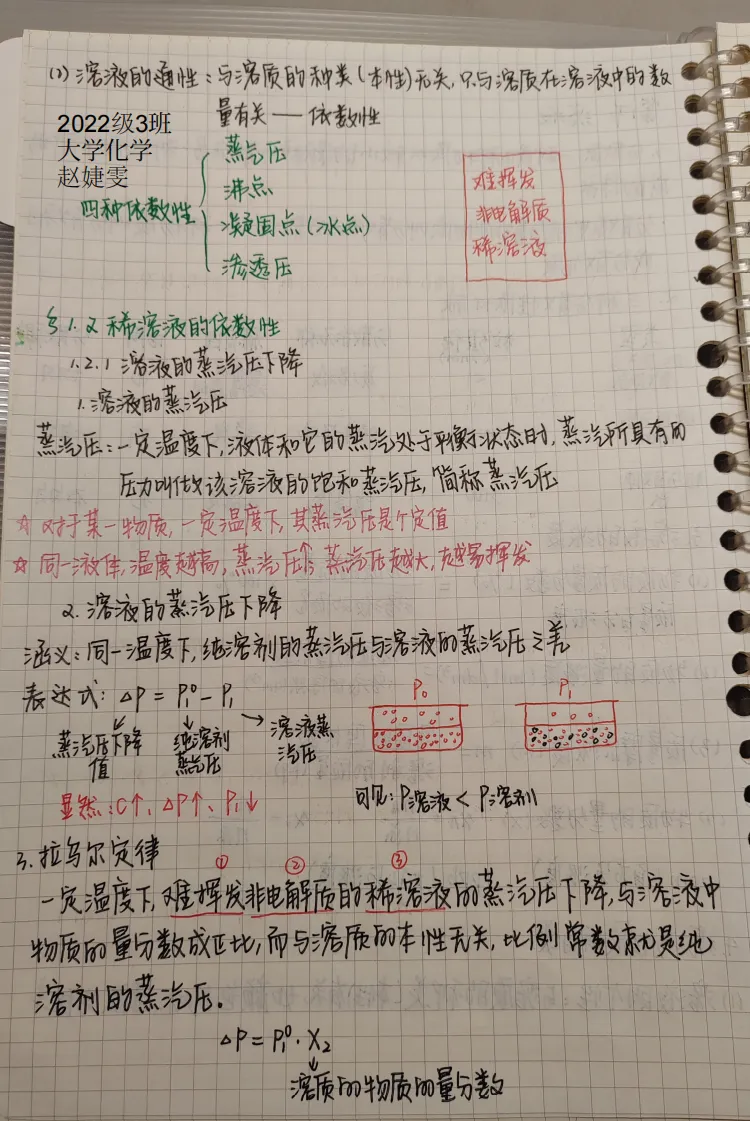 (1)溶液的通性:与溶质的种类(本性)无关,只与溶质在溶液中的数
量有关——依数性
2022级3班
大学化学
赵婕雯
四种依数性
蒸汽压
沸点
凝固点(冰点)
渗透压
难挥发
非电解质
稀溶液
§1.2 稀溶液的依数性
1.2.1 溶液的蒸汽压下降
1.溶液的蒸汽压
蒸汽压:一定温度下,液体和它的蒸汽处于平衡状态时,蒸汽所具有的
压力叫做该溶液的饱和蒸汽压,简称蒸汽压
☆ 对于某一物质,一定温度下,其蒸汽压是个定值
☆ 同一液体,温度越高,蒸汽压↑,蒸汽压越大,越易挥发
2.溶液的蒸汽压下降
涵义:同一温度下,纯溶剂的蒸汽压与溶液的蒸汽压之差
表达式:△P = P₁⁰ - P₁
蒸汽压下降值
纯溶剂蒸汽压
溶液蒸汽压
P₀
P₁
显然:C↑,△P↑,P₁↓
可见:P溶液 < P溶剂
3.拉乌尔定律
① ② ③
一定温度下,难挥发非电解质的稀溶液的蒸汽压下降,与溶液中
物质的量分数成正比,而与溶质的本性无关,比例常数就是纯
溶剂的蒸汽压.
△P = P₁⁰·X₂
溶质的物质的量分数